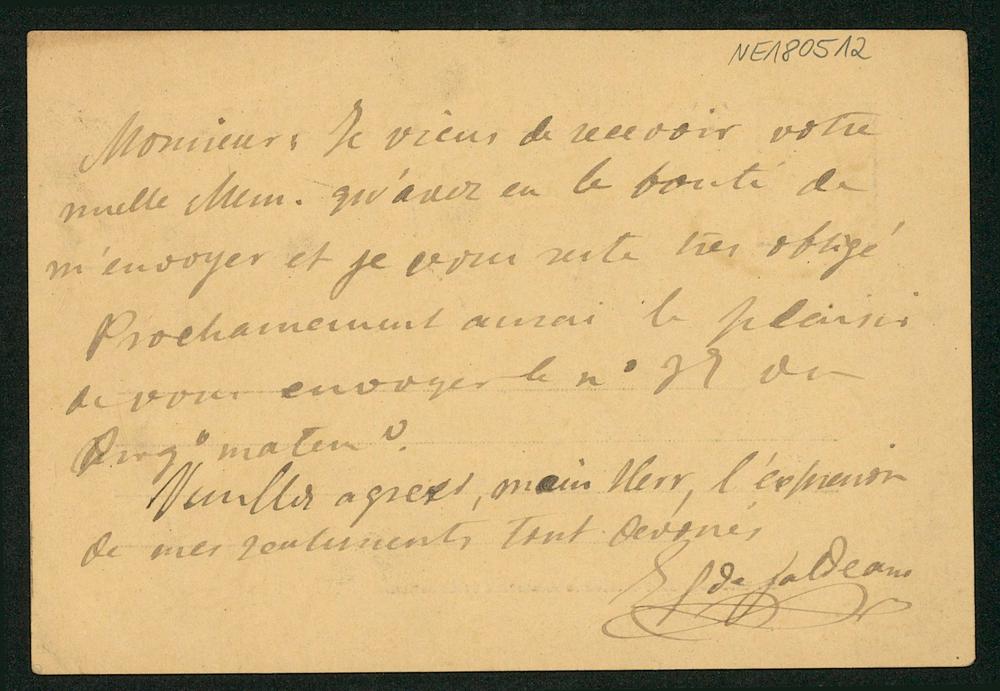 NE180512
Monsieur, Je viens de recevoir votre
nuelle Mem. qu'avez eu le bonté de
m'envoyer et je vous reste très obligé
Prochainement aurai le plaisir
de vous envoyer le n° du
Prog° matem°.
Veuillez agreer, mein Herr, l'éxpression
de mes sentiments tout dévoués